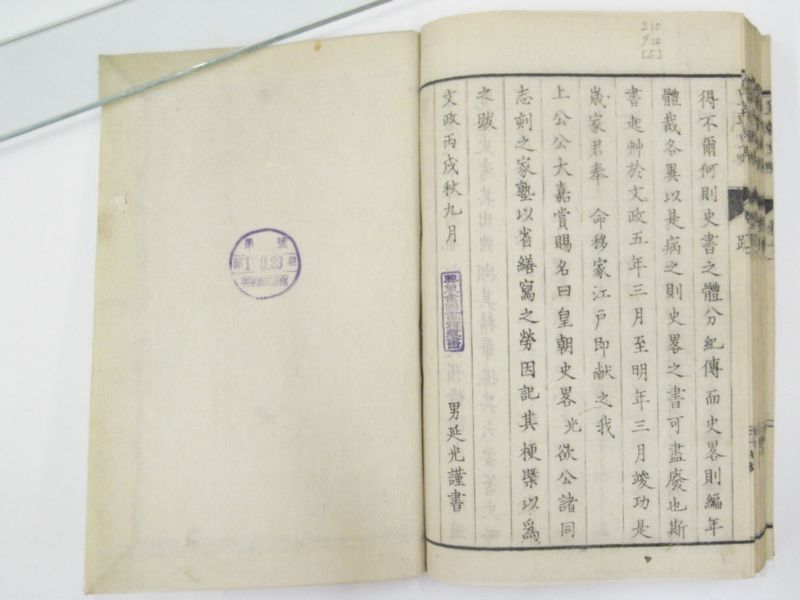 210
912
[5]
得不爾何則史書之體分紀傳而史畧則編年
體裁各異以是病之則史畧之書可盡廢也斯
書起艸於文政五年三月至明年三月竣功是
歲家君奉 命移家江戸即献之我
上公公大嘉賞賜名曰皇朝史畧光欲公諸同
志刺之家塾以省繕寫之勞因記其梗槩以爲
之跋
文政丙戌秋九月 男延光謹書
跋
第 號
1 9.23